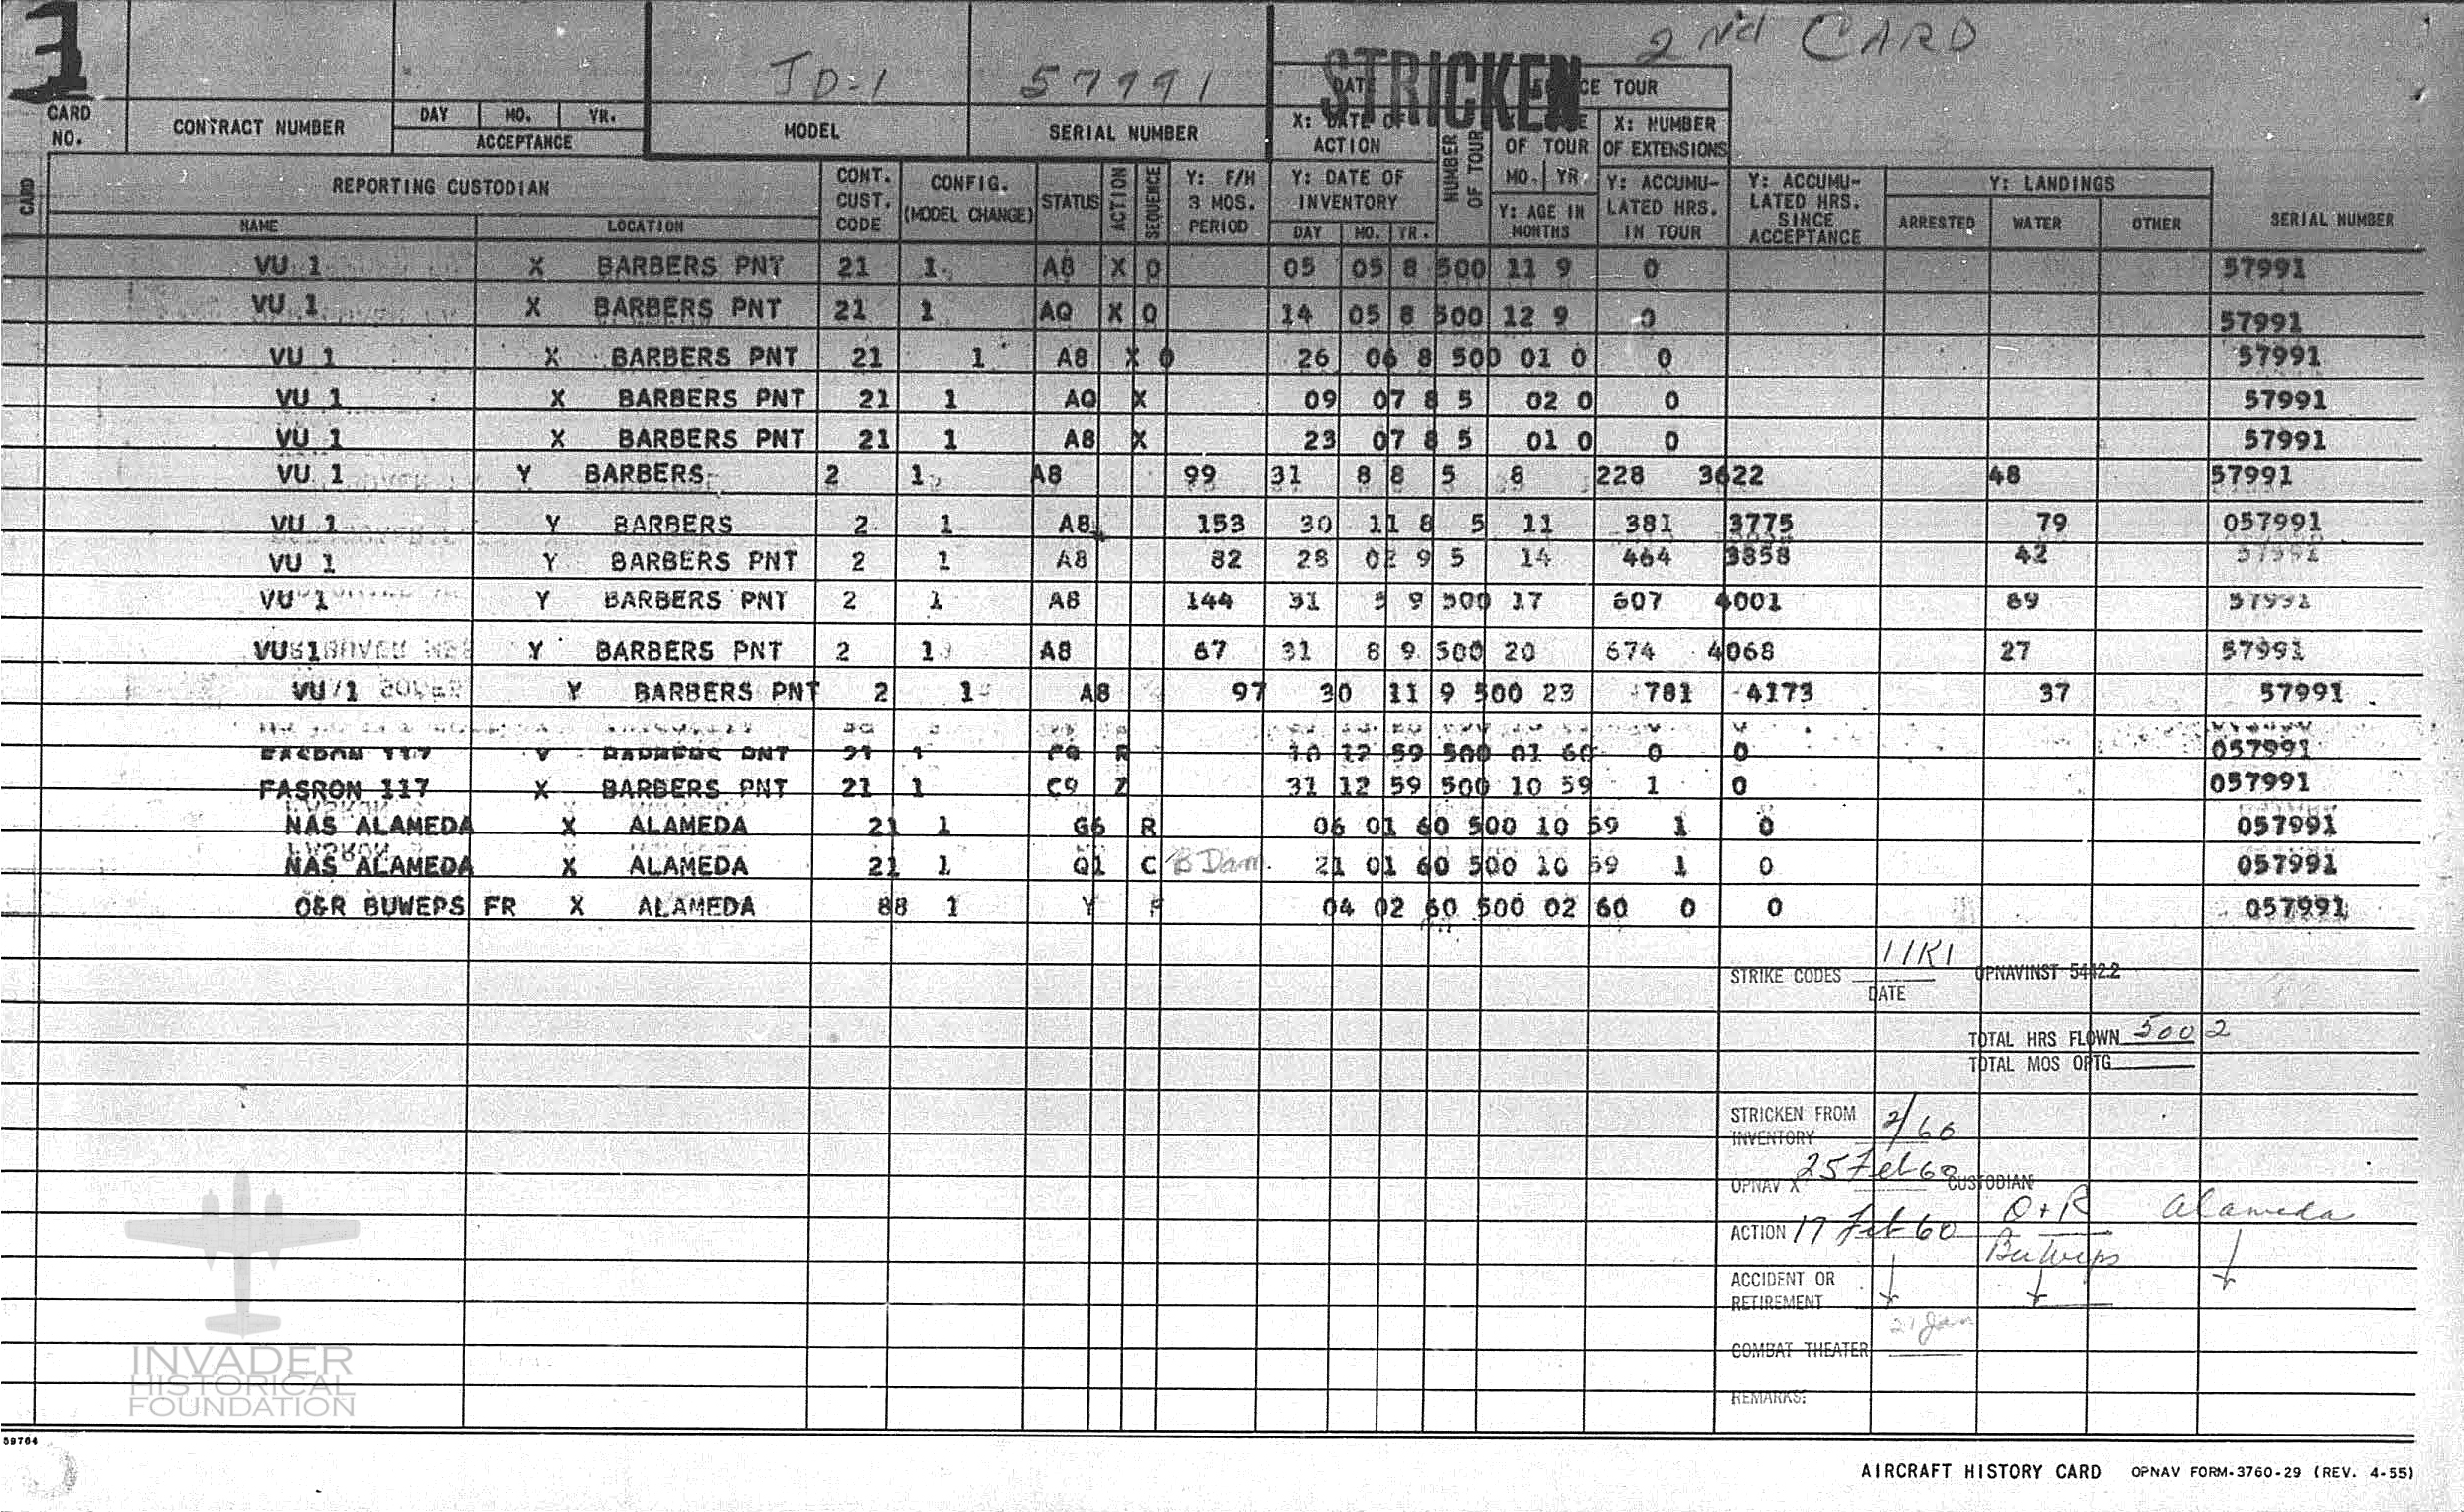 1 2ND CARD
JD-1 57991 STRICKEN
CARD NO. CONTRACT NUMBER DAY MO. YR. ACCEPTANCE MODEL SERIAL NUMBER
X: DATE OF ACTION NUMBER OF TOUR OF TOUR X: NUMBER OF EXTENSIONS
CARD REPORTING CUSTODIAN CONT. CUST. CODE CONFIG. (MODEL CHANGE) STATUS ACTION SEQUENCE Y: F/H 3 MOS. PERIOD Y: DATE OF INVENTORY MO. YR. Y: AGE IN MONTHS Y: ACCUMU-LATED HRS. IN TOUR Y: ACCUMU-LATED HRS. SINCE ACCEPTANCE Y: LANDINGS SERIAL NUMBER
NAME LOCATION DAY MO. YR. ARRESTED WATER OTHER
VU 1 X BARBERS PNT 21 1 A8 X 0 05 05 8 500 11 9 0 57991
VU 1 X BARBERS PNT 21 1 AQ X 0 14 05 8 500 12 9 0 57991
VU 1 X BARBERS PNT 21 1 A8 X 0 26 06 8 500 01 0 0 57991
VU 1 X BARBERS PNT 21 1 AQ X 09 07 8 5 02 0 0 57991
VU 1 X BARBERS PNT 21 1 A8 X 23 07 8 5 01 0 0 57991
VU 1 Y BARBERS 2 1 A8 99 31 8 8 5 8 228 3622 48 57991
VU 1 Y BARBERS 2 1 A8 153 30 11 8 5 11 381 3775 79 057991
VU 1 Y BARBERS PNT 2 1 A8 82 28 02 9 5 14 464 3858 42 57991
VU 1 Y BARBERS PNT 2 1 A8 144 31 5 9 500 17 607 4001 89 57991
VU 1 Y BARBERS PNT 2 1 A8 67 31 8 9 500 20 674 4068 27 57991
VU 1 Y BARBERS PNT 2 1 A8 97 30 11 9 500 23 781 4173 37 57991
FASRON 117 BARBERS PNT 21 1 C9 R 12 59 500 01 60 0 0 057991
FASRON 117 X BARBERS PNT 21 1 C9 Z 31 12 59 500 10 59 1 0 057991
NAS ALAMEDA X ALAMEDA 21 1 G6 R 06 01 60 500 10 59 1 0 057991
NAS ALAMEDA X ALAMEDA 21 1 Q1 C B Dam. 21 01 60 500 10 59 1 0 057991
O&R BUWEPS FR X ALAMEDA 88 1 Y 04 02 60 500 02 60 0 0 057991
STRIKE CODES 11K1 OPNAVINST 5442.2
DATE
TOTAL HRS FLOWN 5002
TOTAL MOS OPTG
STRICKEN FROM INVENTORY 2/60
OPNAV X 25 Feb 60 CUSTODIAN
ACTION 17 Feb 60 O+R BuWeps Alameda
ACCIDENT OR RETIREMENT
21 Jan
COMBAT THEATER
REMARKS:
INVADER
HISTORICAL
FOUNDATION
59764
AIRCRAFT HISTORY CARD OPNAV FORM-3760-29 (REV. 4-55)